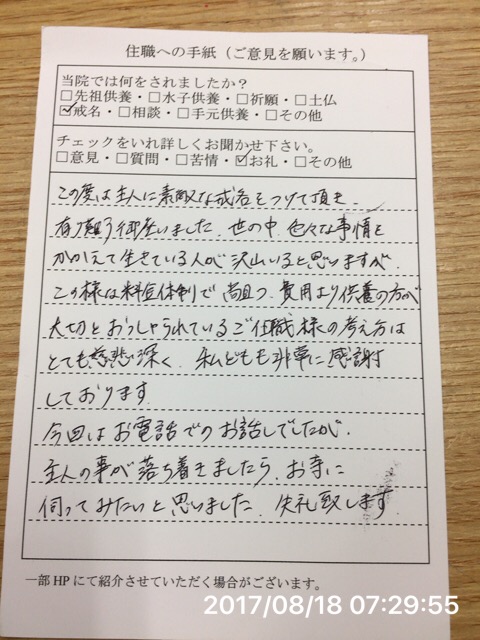 住職への手紙（ご意見を願います。）
当院では何をされましたか？
□先祖供養・□水子供養・□祈願・□土仏
☑戒名・□相談・□手元供養・□その他
チェックをいれ詳しくお聞かせ下さい。
□意見・□質問・□苦情・☑お礼・□その他
この度は主人に素敵な戒名をつけて頂き、
有り難う御座いました。世の中 色々な事情を
かかえて生きている人が沢山いると思いますが、
この様は料金体制で 尚且つ、費用より供養の方が
大切とおっしゃられているご住職様の考え方は
とても慈悲深く、私どもも非常に感謝
しております
今回はお電話でのお話しでしたが、
主人の事が落ち着きましたら、お寺に
伺ってみたいと思いました。失礼致します。
一部HPにて紹介させていただく場合がございます。
2017/08/18 07:29:55